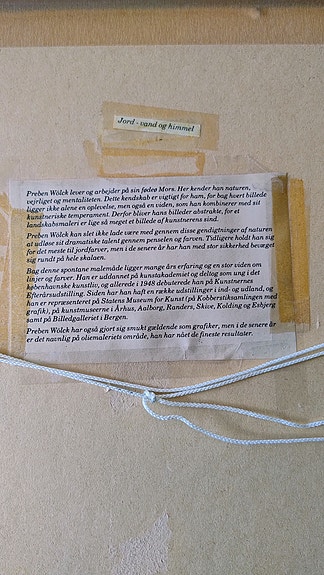 Jord - vand og himmel
Preben Wölck lever og arbejder på sin fødeø Mors. Her kender han naturen,
vejrliget og mentaliteten. Dette kendskab er vigtigt for ham, for bag hvert billede
ligger ikke alene en oplevelse, men også en viden, som han kombinerer med sit
kunstneriske temperament. Derfor bliver hans billeder abstrakte, for et
landskabsmaleri er lige så meget et billede af kunstnerens sind.
Preben Wölck kan slet ikke lade være med gennem disse gendigtninger af naturen
at udløse sit dramatiske talent gennem penselen og farven. Tidligere holdt han sig
for det meste til jordfarver, men i de senere år har han med stor sikkerhed bevæget
sig rundt på hele skalaen.
Bag denne spontane malemåde ligger mange års erfaring og en stor viden om
linjer og farver. Han er uddannet på kunstakademiet og deltog som ung i det
københavnske kunstliv, og allerede i 1948 debuterede han på Kunstnernes
Efterårsudstilling. Siden har han haft en række udstillinger i ind- og udland, og
han er repræsenteret på Statens Museum for Kunst (på Kobberstiksamlingen med
grafik), på kunstmuseerne i Århus, Aalborg, Randers, Skive, Kolding og Esbjerg
samt på Billedgalleriet i Bergen.
Preben Wölck har også gjort sig smukt gældende som grafiker, men i de senere år
er det navnlig på oliemaleriets område, han har nået de fineste resultater.